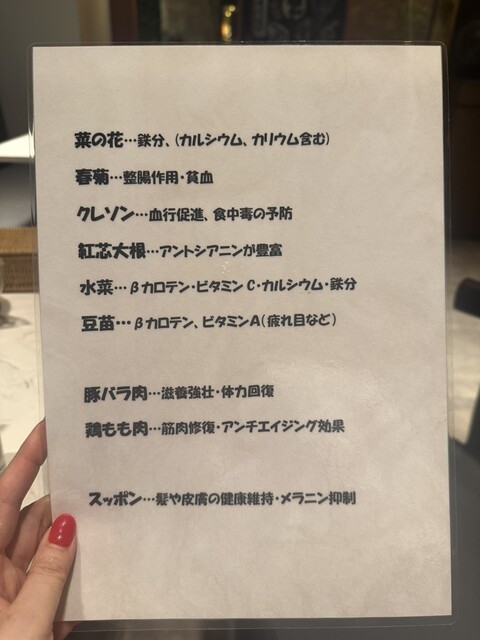 菜の花…鉄分、(カルシウム、カリウム含む)
春菊…整腸作用・貧血
クレソン…血行促進、食中毒の予防
紅芯大根…アントシアニンが豊富
水菜…βカロテン・ビタミンC・カルシウム・鉄分
豆苗…βカロテン、ビタミンA(疲れ目など)
豚バラ肉…滋養強壮・体力回復
鶏もも肉…筋肉修復・アンチエイジング効果
スッポン…髪や皮膚の健康維持・メラニン抑制